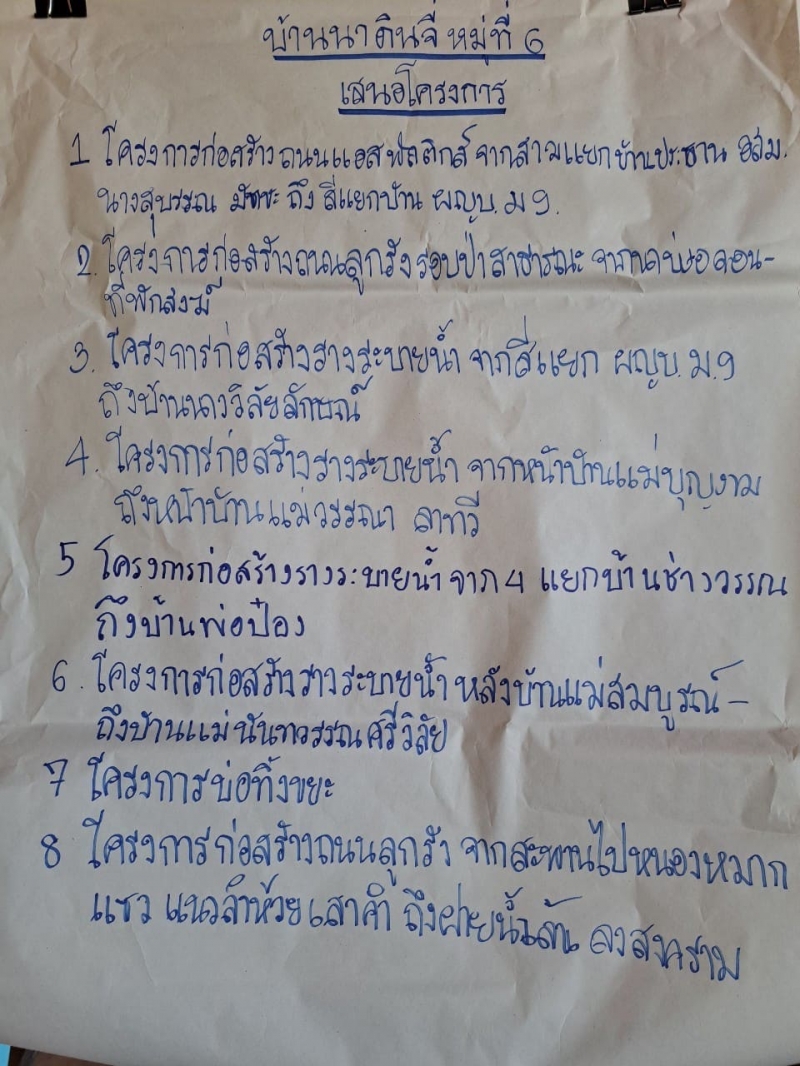 บ้านนาดินจี่ หมู่ที่ 6
เสนอโครงการ
1 โครงการก่อสร้างถนนแอสฟัลติกส์ จากสามแยกบ้านประธาน อสม.
นางสุบรรณ มัชชะ ถึง สี่แยกบ้าน ผญบ. ม 9.
2. โครงการก่อสร้างถนนลูกรังรอบป่าสาธารณะ จาก
ที่พักสงฆ์
3. โครงการก่อสร้างรางระบายน้ำ จากสี่แยก ผญบ. ม. 9
ถึงบ้านนางวิลัยลักษณ์
4. โครงการก่อสร้างรางระบายน้ำ จากหน้าบ้านแม่บุญงาม
ถึงหน้าบ้านแม่วรรณา ลาทวี
5 โครงการก่อสร้างรางระบายน้ำจาก 4 แยกบ้านช่างวรรณ
ถึงบ้านพ่อป๋อง
6. โครงการก่อสร้างรางระบายน้ำ หลังบ้านแม่สมบูรณ์ -
ถึงบ้านแม่นันทวรรณศรีวิลัย
7 โครงการบ่อทิ้งขยะ
8 โครงการก่อสร้างถนนลูกรัง จากสะพานไปหนองหมาก
แซว แนวลำห้วยเสาคำ ถึงฝายน้ำล้น ลงสงคราม